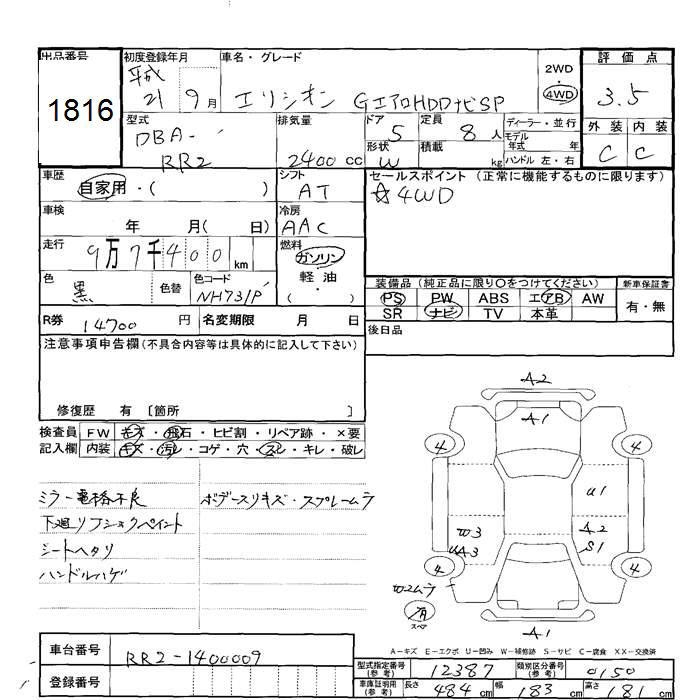 出品番号
1816
初度登録年月
平成
21 9月
車名・グレード
エリシオン GエアロHDDナビSP
2WD
・
4WD
評価点
3.5
外装 内装
C C
型式
DBA-
RR2
排気量
2400 cc
ドア
5
形状
W
定員
8人
積載
kg
ディーラー・並行
モデル
年式 年
ハンドル 左・右
車歴
自家用・( )
シフト
AT
セールスポイント (正常に機能するものに限ります)
☆4WD
車検
年 月( 日)
冷房
AAC
走行
9万7千400km
燃料
ガソリン
・
軽油
・
( )
色
黒
色替
色コード
NH731P
装備品(純正品に限り○をつけてください)
PS PW ABS エアB AW
SR ナビ TV 本革
新車保証書
有・無
R券 14700 円
名変期限 月 日
後日品
注意事項申告欄(不具合内容等は具体的に記入して下さい)
修復歴 有 〔箇所 〕
検査員
記入欄
FW キズ・飛石・ヒビ割・リペア跡・×要
内装 キズ・汚レ・コゲ・穴・スレ・キレ・破レ
ミラー電格不良
ボデースリキズ・スプレームラ
下廻リフショックペイント
シートヘタリ
ハンドルハゲ
A2
A1
4 4
U1
W3
A2
S1
UA3
4 4
セコムラ
有
スペア
A1
A-キズ E-エクボ U-凹み W-補修跡 S-サビ C-腐食 XX-交換済
車台番号
RR2-1400009
登録番号
型式指定番号
(参考)
12387
類別区分番号
(参考)
0150
車庫証明用
(参考)
長さ 484 cm
幅 183 cm
高さ 181 cm